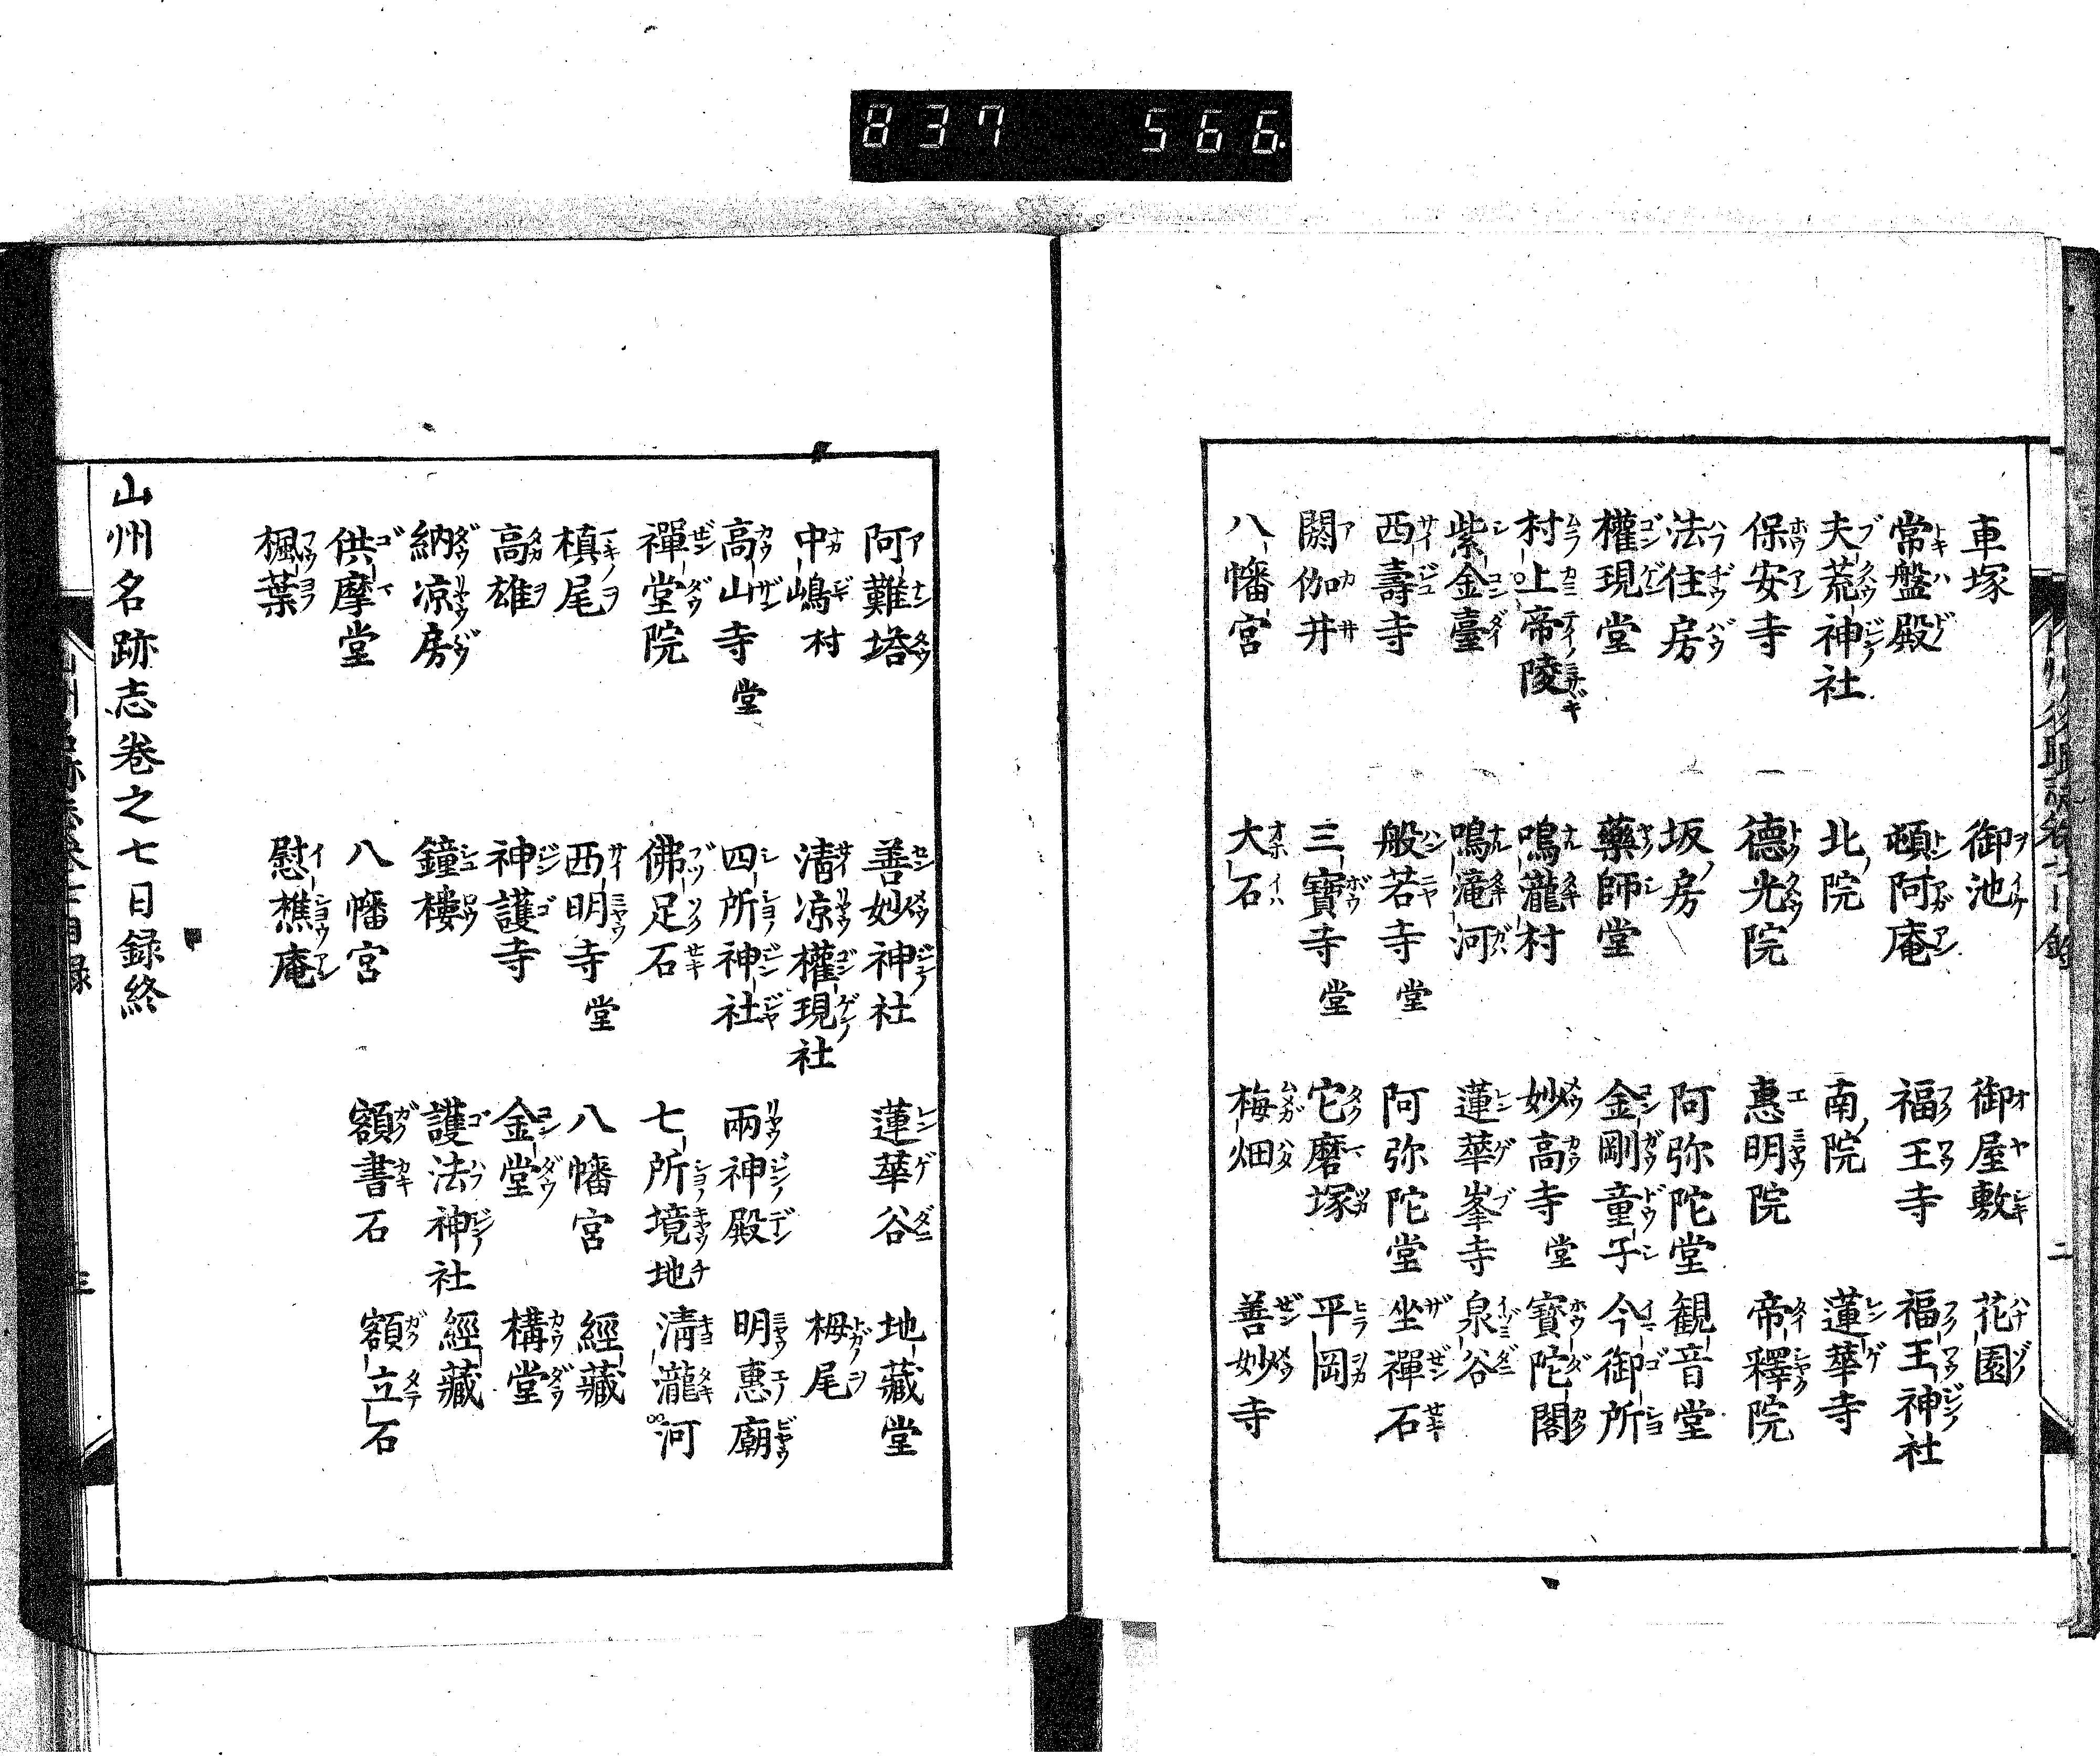 837 566
車塚 御池 御屋敷 花園
常盤殿 頓阿庵 福王寺 福王神社
夫荒神社 北院 南院 蓮華寺
保安寺 德光院 惠明院 帝釋院
法住房 坂房 阿弥陀堂 観音堂
權現堂 藥師堂 金剛童子 今御所
村上帝陵 鳴瀧村 妙高寺堂 寶陀閣
紫金臺 鳴滝河 蓮華峯寺 泉谷
西壽寺 般若寺堂 阿弥陀堂 坐禪石
閼伽井 三寶寺堂 宅磨塚 平岡
八幡宮 大石 梅畑 善妙寺
二
阿難塔 善妙神社 蓮華谷 地藏堂
中嶋村 清凉權現社 栂尾
高山寺堂 四所神社 兩神殿 明惠廟
禪堂院 佛足石 七所境地 清瀧河
槙尾 西明寺堂 八幡宮 經藏
高雄 神護寺 金堂 構堂
納凉房 鐘樓 護法神社 經藏
供摩堂 八幡宮 額書石 額立石
楓葉 慰樵庵
山州名跡志卷之七目録終
三